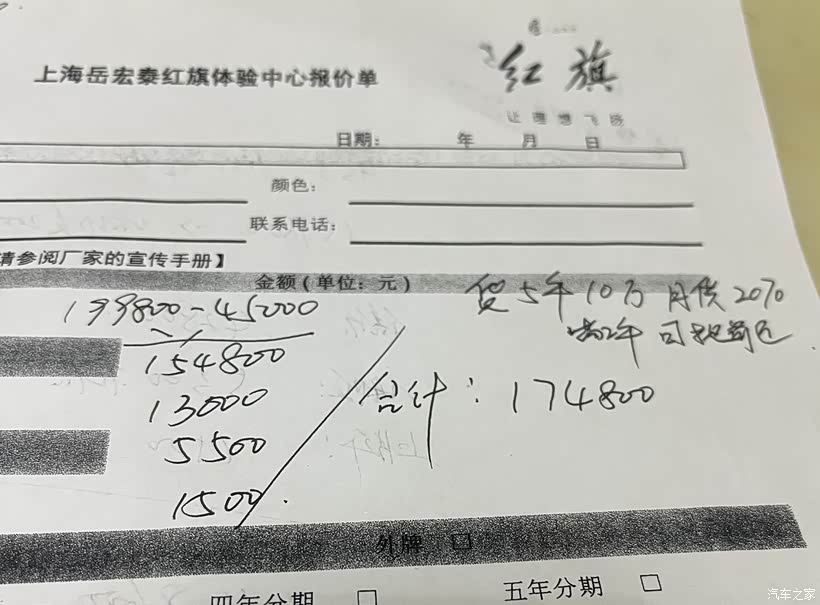 红旗
让理想飞扬
上海岳宏泰红旗体验中心报价单
日期: 年 月 日
颜色:
联系电话:
请参阅厂家的宣传手册】
金额(单位:元)
贷5年10万 月供2070
199800-45000
满2年 可提前还
154800
合计: 174800
13000
5500
1500.
外牌 □
四年分期 □ 五年分期 □
汽车之家